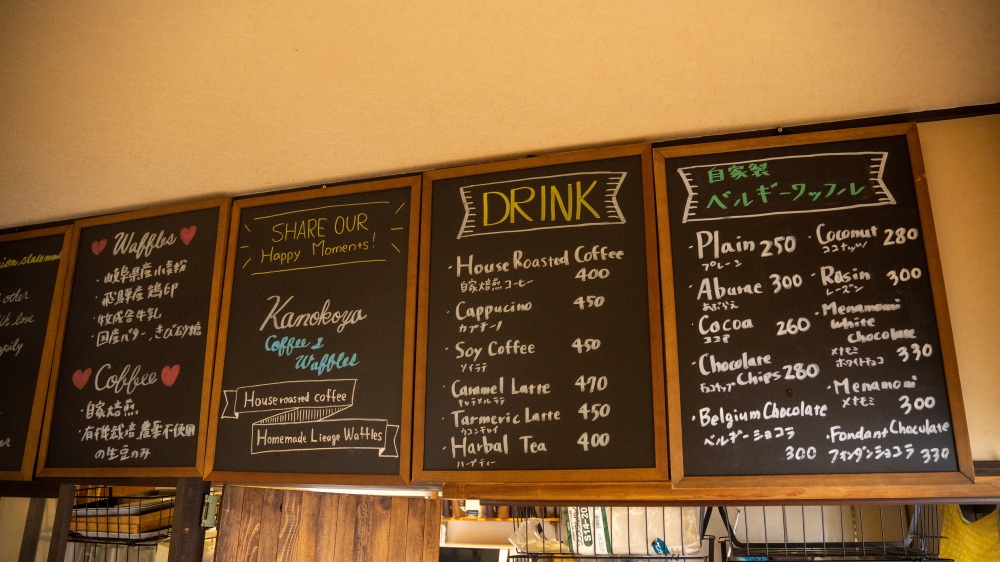 oder
Waffles
・岐阜県産小麦粉
・飛騨産鶏卵
・牧成舎牛乳
・国産バター、きび砂糖
Coffee
・自家焙煎
・有機栽培,農薬不使用
の生豆のみ
SHARE OUR
Happy Moments!
Kanokoya
Coffee &
Waffles
House roasted coffee
Homemade Lieage Waffles
DRINK
・House Roasted Coffee
自家焙煎コーヒー 400
・Cappucino 450
カプチーノ
・Soy Coffee 450
ソイラテ
・Caramel Latte 470
キャラメルラテ
・Tarmeric Latte 450
ウコンチャイ
・Harbal Tea 400
ハーブティー
自家製
ベルギーワッフル
・Plain 250
プレーン
・Aburae 300
あぶらえ
・Cocoa 260
ココア
・Chocolate
チョコチップ Chips 280
・Belgium Chocolate
ベルギーショコラ
300
・Coconut 280
ココナッツ
・Rasin 300
レーズン
・Menamomi
White
Chocolate
メナモミ
ホワイトチョコ 330
・Menamomi
メナモミ 300
・Fondant Chocolate
フォンダンショコラ 330
S14-20